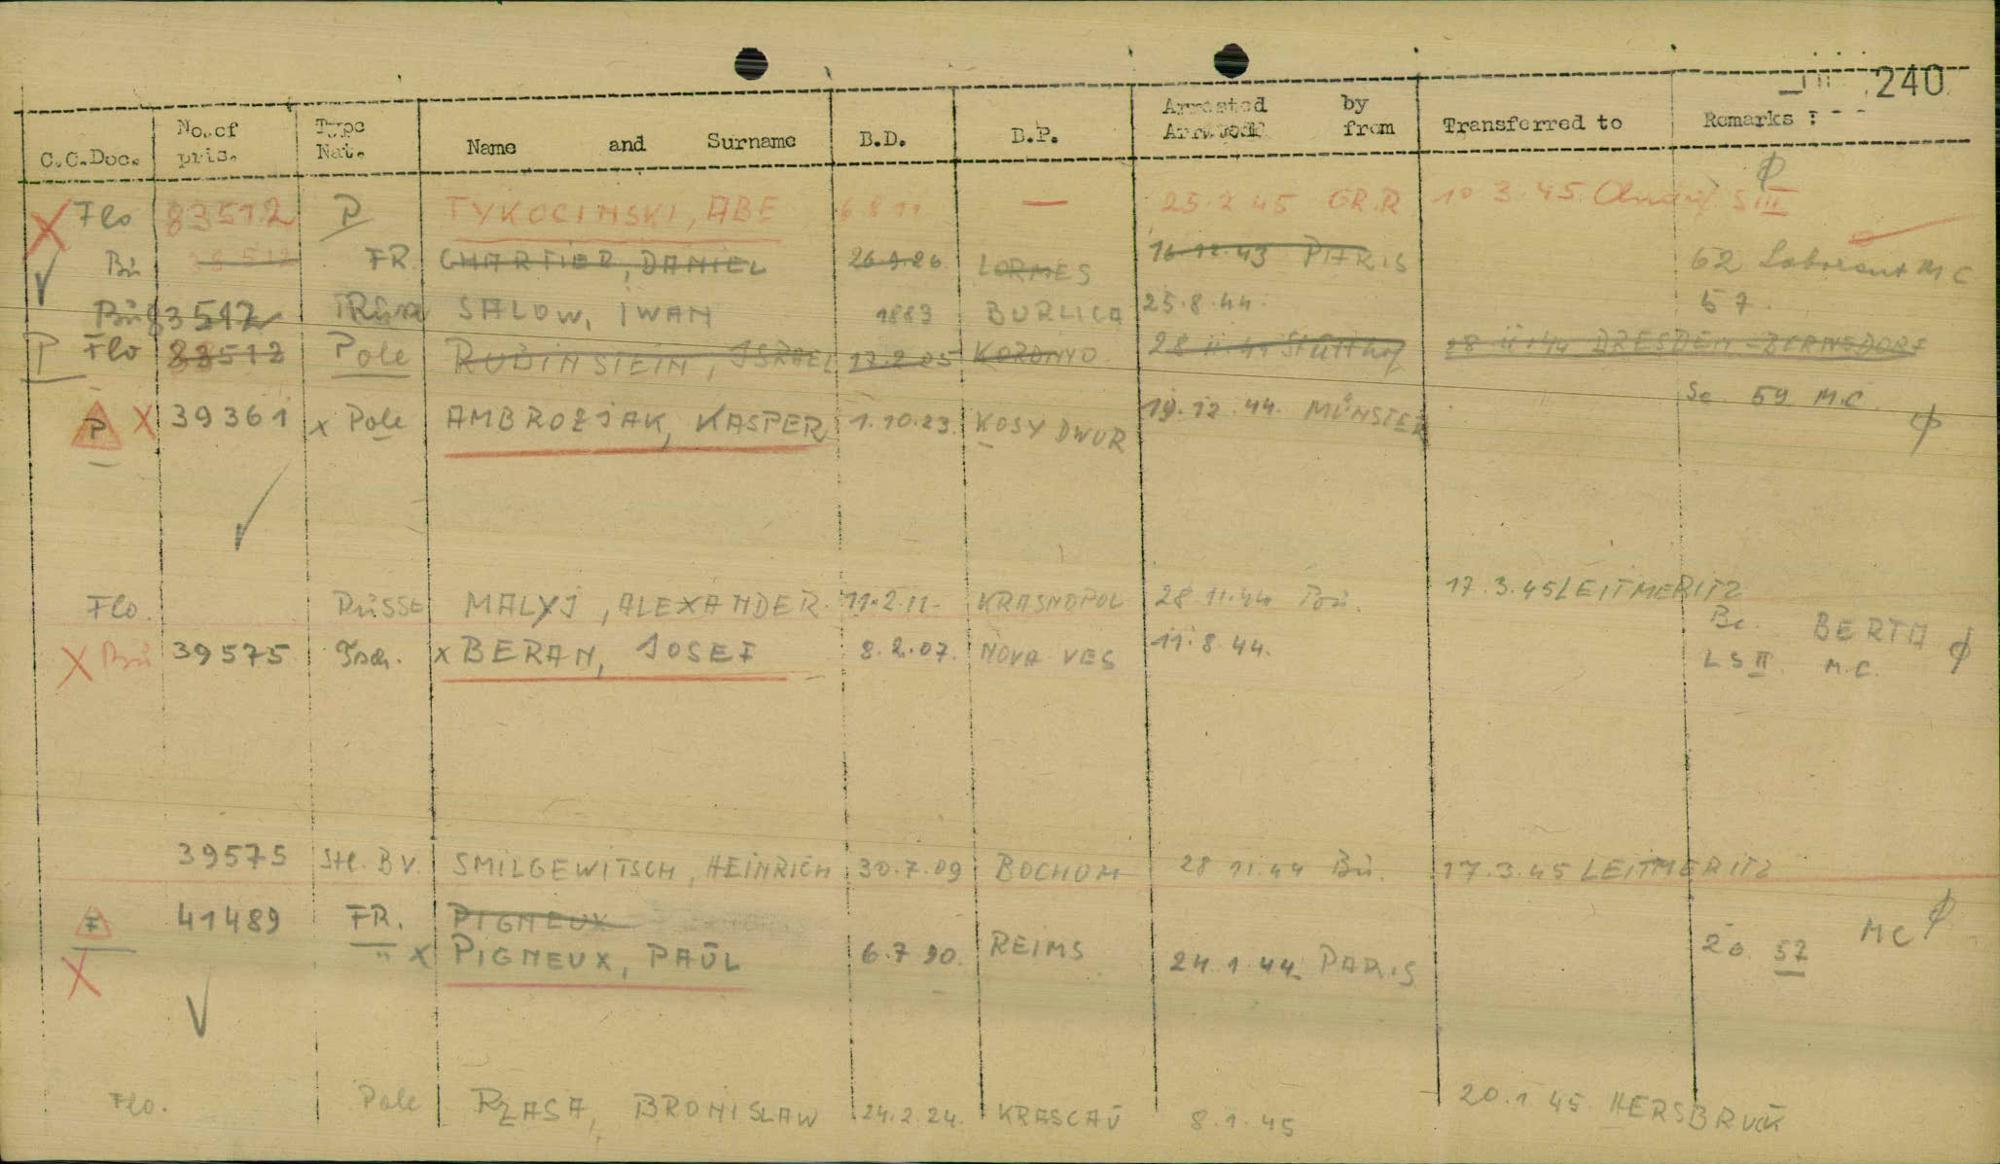 240
C.C.Doc. No.of pris. Type Nat. Name and Surname B.D. B.P. Arrested by from Transferred to Remarks :
Flo 83512 P TYKOCINSKI, ABE 6.8.11 — 25.2.45 GR.R 10.3.45 S III
Bu FR CHARTIER, DANIEL 26.9.26 LORMES 16.12.43 PARIS 62 Laborant M C
Bu 83512 SALOW, IWAN 1883 BURLICA 25.8.44. 57.
P Flo 83512 Pole RUBINSTEIN, ISRAEL 17.2.05 28 11.44 Stutthof 28 11 44 DRESDEN-BERNSDORF
P X 39361 x Pole AMBROZJAK, KASPER 1.10.23. KOSY DWUR 19.12.44. MÜNSTER Sc. 59 M.C.
Flo. RUSSE MALYJ, ALEXANDER. 11.2.11. KRASNOPOL 28 11.44 Bu. 17.3.45 LEITMERITZ
X Bu 39575 Tsch. x BERAN, JOSEF 8.2.07. NOVA VES 11.8.44. Be. BERTA
LS II M.C.
39575 Stl. BV. SMILGEWITSCH, HEINRICH 30.7.09 BOCHUM 28 11.44 Bu. 17.3.45 LEITMERITZ
F 41489 FR. PIGNEUX
X " x PIGNEUX, PAUL 6.7 90. REIMS 24.1.44 PARIS 20. 57 MC
Flo. Pole RZASA, BRONISLAW 24.2.24. KRASCAU 8.1.45 20.1 45 HERSBRUCK